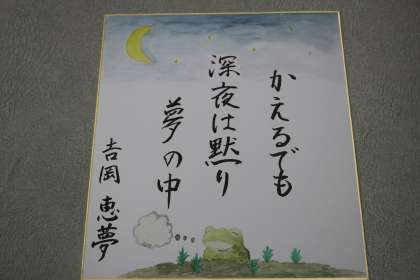 かえるでも
深夜は黙り
夢の中
吉岡恵夢